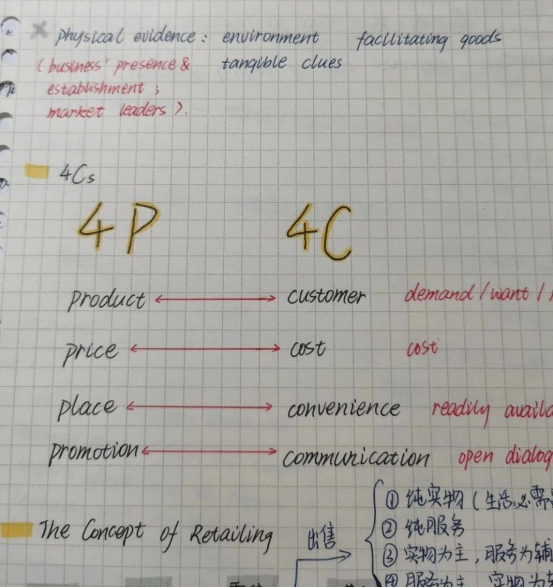 physical evidence : environment facilitating goods
(business' presence & tangible clues
establishment ;
market leaders ).
4Cs
4P 4C
product customer demand / want /
price cost cost
place convenience readily
promotion communication open dialog
① 纯实物 ( 生活必需
The Concept of Retailing 出售 ② 纯服务
③ 实物为主 , 服务为辅
④ 服务为主 实物为